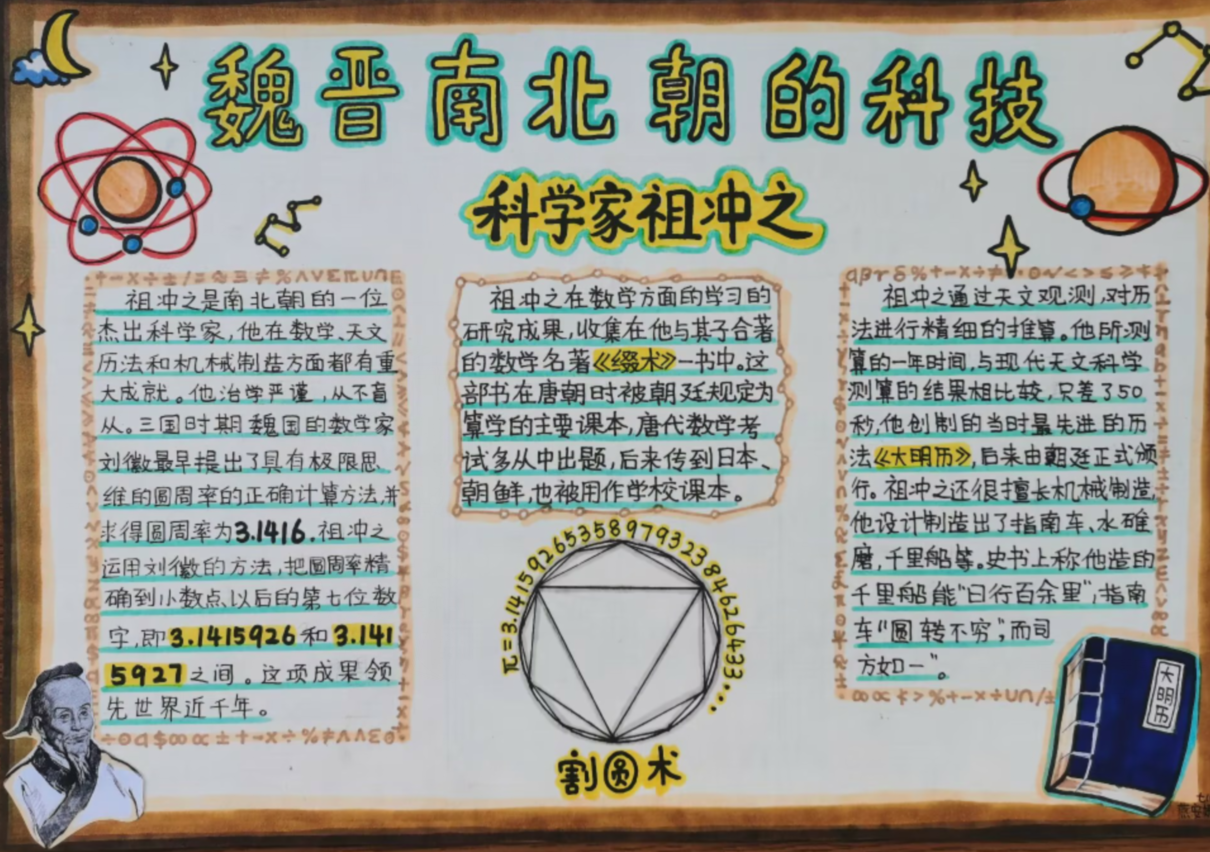 魏晋南北朝的科技
科学家祖冲之
祖冲之是南北朝的一位
杰出科学家,他在数学、天文
历法和机械制造方面都有重
大成就。他治学严谨,从不盲
从。三国时期魏国的数学家
刘徽最早提出了具有极限思
维的圆周率的正确计算方法,并
求得圆周率为3.1416.祖冲之
运用刘徽的方法,把圆周率精
确到小数点以后的第七位数
字,即3.1415926和3.141
5927之间。这项成果领
先世界近千年。
祖冲之在数学方面的学习的
研究成果,收集在他与其子合著
的数学名著《缀术》一书中。这
部书在唐朝时被朝廷规定为
算学的主要课本,唐代数学考
试多从中出题,后来传到日本、
朝鲜,也被用作学校课本。
π=3.1415926535897932384626433...
割圆术
祖冲之通过天文观测,对历
法进行精细的推算。他所测
算的一年时间,与现代天文科学
测算的结果相比较,只差了50
秒,他创制的当时最先进的历
法《大明历》,后来由朝廷正式颁
行。祖冲之还很擅长机械制造,
他设计制造出了指南车、水碓
磨,千里船等。史书上称他造的
千里船能"日行百余里",指南
车"圆转不穷",而司
方如一"。
大明历